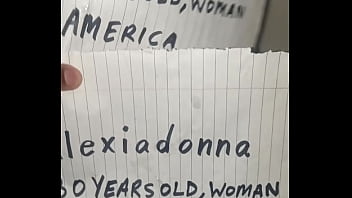 OLD, WOMAN
AMERICA
lexiadonna
0 YEARS OLD, WOMAN